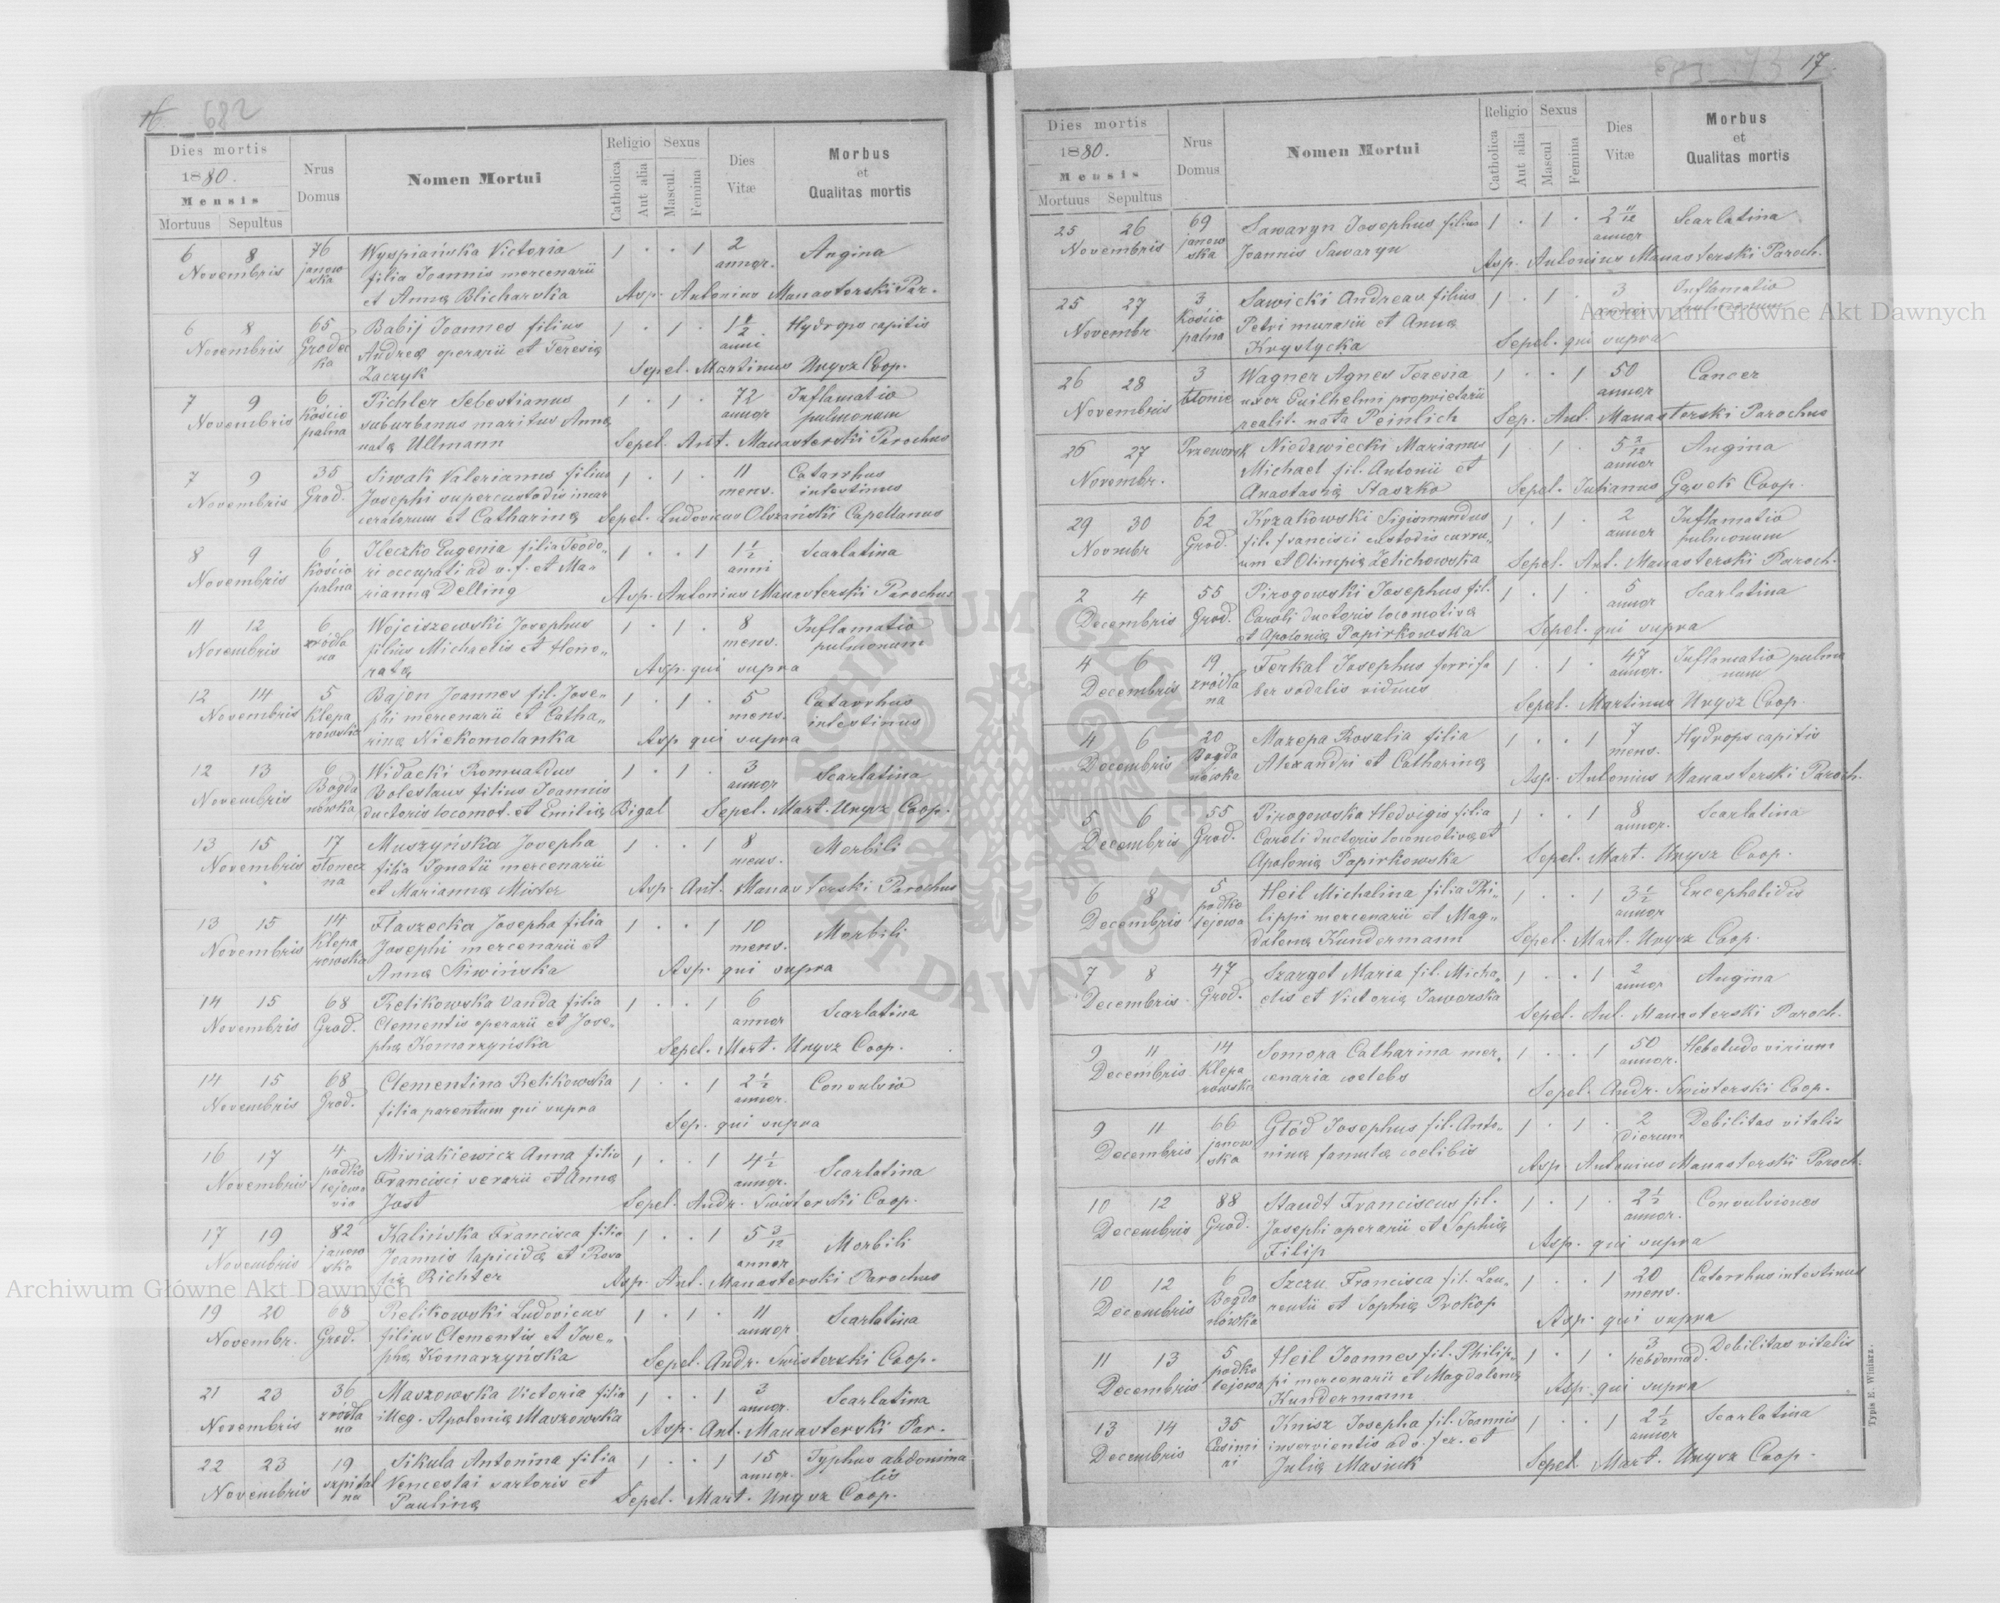 16 682
Dies mortis
1880.
Mensis
Mortuus Sepultus
Nrus Domus
Nomen Mortui
Religio
Catholica
Aut alia
Sexus
Mascul.
Femina
Dies Vitæ
Morbus
et
Qualitas mortis
6 8 76 Wyspiańska Victoria 1 . . 1 2 Angina
Novembris janow filia Joannis mercenarii annor.
ska et Annæ Blicharska Asp. Antonius Manasterski Par.
6 8 65 Babij Joannes filius 1 . 1 . 1 1/2 Hydrops capitis
Novembris Grodec Andreæ operarii et Teresiæ anni
ka Zaczyk Sepel. Martinus Ungvz Coop.
7 9 6 Pichler Sebestianus 1 . 1 . 72 Inflamatio
Novembris Kościo suburbanus maritus Annæ annor pulmonum
palna natæ Ullmann Sepel. Ant. Manasterski Parochus
7 9 35 Siwak Valerianus filius 1 . 1 . 11 Catarrhus
Novembris Grod. Josephi supercustodis incar mens. intestinus
ceratorum et Catharinæ Sepel. Ludovicus Olszański Capellanus
8 9 6 Ileczko Eugenia filia Teodo- 1 . . 1 1 1/2 Scarlatina
Novembris Kościo ri occupati ad v. f. et Ma- anni
palna riannæ Delling Asp. Antonius Manasterski Parochus
11 12 6 Wojciszewski Josephus 1 . 1 . 8 Inflamatio
Novembris źródla filius Michaelis et Hono- mens. pulmonum
na ratæ Asp. qui supra
12 14 5 Bajon Joannes fil. Jose- 1 . 1 . 5 Catarrhus
Novembris Klepa phi mercenarii et Catha- mens. intestinus
rowska rinæ Niekomolanka Asp. qui supra
12 13 6 Widacki Romualdus 1 . 1 . 3 Scarlatina
Novembris Bogda Boleslaus filius Joannis annor
nówka ductoris locomot. et Emiliæ Bigal Sepel. Mart. Ungvz Coop.
13 15 17 Muszyńska Josepha 1 . . 1 8 Morbili
Novembris słonecz filia Ignatii mercenarii mens.
na et Mariannæ Mister Asp. Ant. Manasterski Parochus
13 15 14 Flaszecka Josepha filia 1 . . 1 10 Morbili
Novembris Klepa Josephi mercenarii et mens.
rowska Annæ Sliwińska Asp. qui supra
14 15 68 Relikowska Vanda filia 1 . . 1 6 Scarlatina
Novembris Grod. Clementis operarii et Jose- annor
phæ Komarzyńska Sepel. Mart. Ungvz Coop.
14 15 68 Clementina Relikowska 1 . . 1 2 1/2 Convulsio
Novembris Grod. filia parentum qui supra annor.
Sep. qui supra
16 17 4 Misiakiewicz Anna filia 1 . . 1 4 1/2 Scarlatina
Novembris podko Francisci serarii et Annæ annor.
lejowa Jost Sepel. Andr. Swisterski Coop.
17 19 82 Kalińska Francisca filia 1 . . 1 5 3/12 Morbili
Novembris janow Joannis lapicidæ et Rosa annor
ska liæ Richter Asp. Ant. Manasterski Parochus
19 20 68 Relikowski Ludovicus 1 . 1 . 11 Scarlatina
Novembr. Grod. filius Clementis et Jose- annor
phæ Komarzyńska Sepel. Andr. Swisterski Coop.
21 23 36 Maszowska Victoria filia 1 . . 1 3 Scarlatina
Novembris źródla illeg. Apoloniæ Maszowska annor.
na Asp. Ant. Manasterski Par.
22 23 19 Sikula Antonina filia 1 . . 1 15 Typhus abdomina
Novembris szpital Venceslai sartoris et annor. lis
na Paulinæ Sepel. Mart. Ungvz Coop.
17
Dies mortis
1880.
Mensis
Mortuus Sepultus
Nrus Domus
Nomen Mortui
Religio
Catholica
Aut alia
Sexus
Mascul
Femina
Dies Vitæ
Morbus
et
Qualitas mortis
25 26 69 Sawaryn Josephus filius 1 . 1 . 2 11/12 Scarlatina
Novembris janow Joannis Sawaryn annor
ska Asp. Antonius Manasterski Paroch.
25 27 3 Sawicki Andreas filius 1 . 1 . 3 Inflamatio
Novembr Kościo Petri murarii et Annæ annor pulmonum
palna Krystycka Sepel. qui supra
26 28 3 Wagner Agnes Teresia 1 . . 1 50 Cancer
Novembris błonie uxor Guilhelmi proprietarii annor
realit. nata Peinlich Sep. Ant. Manasterski Parochus
26 27 Przeworsk Niedzwiecki Marianus 1 . 1 . 5 3/12 Angina
Novembr. Michael fil. Antonii et annor
Anastasiæ Staszko Sepel. Julianus Gąsek Coop.
29 30 62 Krzakowski Sigismundus 1 . 1 . 2 Inflamatio
Novmbr Grod. fil. francisci custodis curru- annor pulmonum
um et Olimpiæ Zelichowska Sepel. Ant. Manasterski Paroch.
2 4 55 Pirogowski Josephus fil. 1 . 1 . 5 Scarlatina
Decembris Grod. Caroli ductoris locomotivæ annor
et Apoloniæ Papirkowska Sepel. qui supra
4 6 19 Ferkal Josephus ferrifa 1 . 1 . 47 Inflamatio pulmo
Decembris źródla ber sodalis viduus annor. num
na Sepel. Martinus Ungvz Coop.
4 6 20 Mazepa Rosalia filia 1 . . 1 7 Hydrops capitis
Decembris Bogda Alexandri et Catharinæ mens.
nówka Asp. Antonius Manasterski Paroch.
5 6 55 Pirogowska Hedvigis filia 1 . . 1 8 Scarlatina
Decembris Grod. Caroli ductoris locomotivæ et annor.
Apoloniæ Papirkowska Sepel. Mart. Ungvz Coop.
6 8 5 Heil Michalina filia Phi- 1 . . 1 3 1/2 Encephalidis
Decembris podko lippi mercenarii et Mag- annor
lejowa dalenæ Kundermann Sepel. Mart. Ungvz Coop.
7 8 47 Szarget Maria fil. Micha- 1 . . 1 2 Angina
Decembris Grod. elis et Victoriæ Jaworska annor
Sepel. Ant. Manasterski Paroch.
9 11 14 Somora Catharina mer- 1 . . 1 50 Hebetudo virium
Decembris Klepa cenaria coelebs annor.
rowska Sepel. Andr. Swisterski Coop.
9 11 66 Głód Josephus fil. Anto- 1 . 1 . 2 Debilitas vitalis
Decembris janow ninæ famulæ coelibis dierum
ska Asp. Antonius Manasterski Paroch.
10 12 88 Staudt Franciscus fil. 1 . 1 . 2 1/2 Convulsiones
Decembris Grod. Josephi operarii et Sophiæ annor.
Filip Asp. qui supra
10 12 6 Szczu Francisca fil. Lau- 1 . . 1 20 Catarrhus intestinus
Decembris Bogda rentii et Sophiæ Prokop mens.
nówka Asp. qui supra
11 13 5 Heil Joannes fil. Philip- 1 . 1 . 3 Debilitas vitalis
Decembris podko pi mercenarii et Magdalenæ hebdomad.
lejowa Kundermann Asp. qui supra
13 14 35 Knisz Josepha fil. Joannis 1 . . 1 2 1/2 Scarlatina
Decembris Casimi inservientis ad v. fer. et annor
ri Juliæ Masiuk Sepel. Mart. Ungvz Coop.
Typis E. Winiarz.
Archiwum Główne Akt Dawnych
Archiwum Główne Akt Dawnych
ARCHIWUM GŁÓWNE AKT DAWNYCH